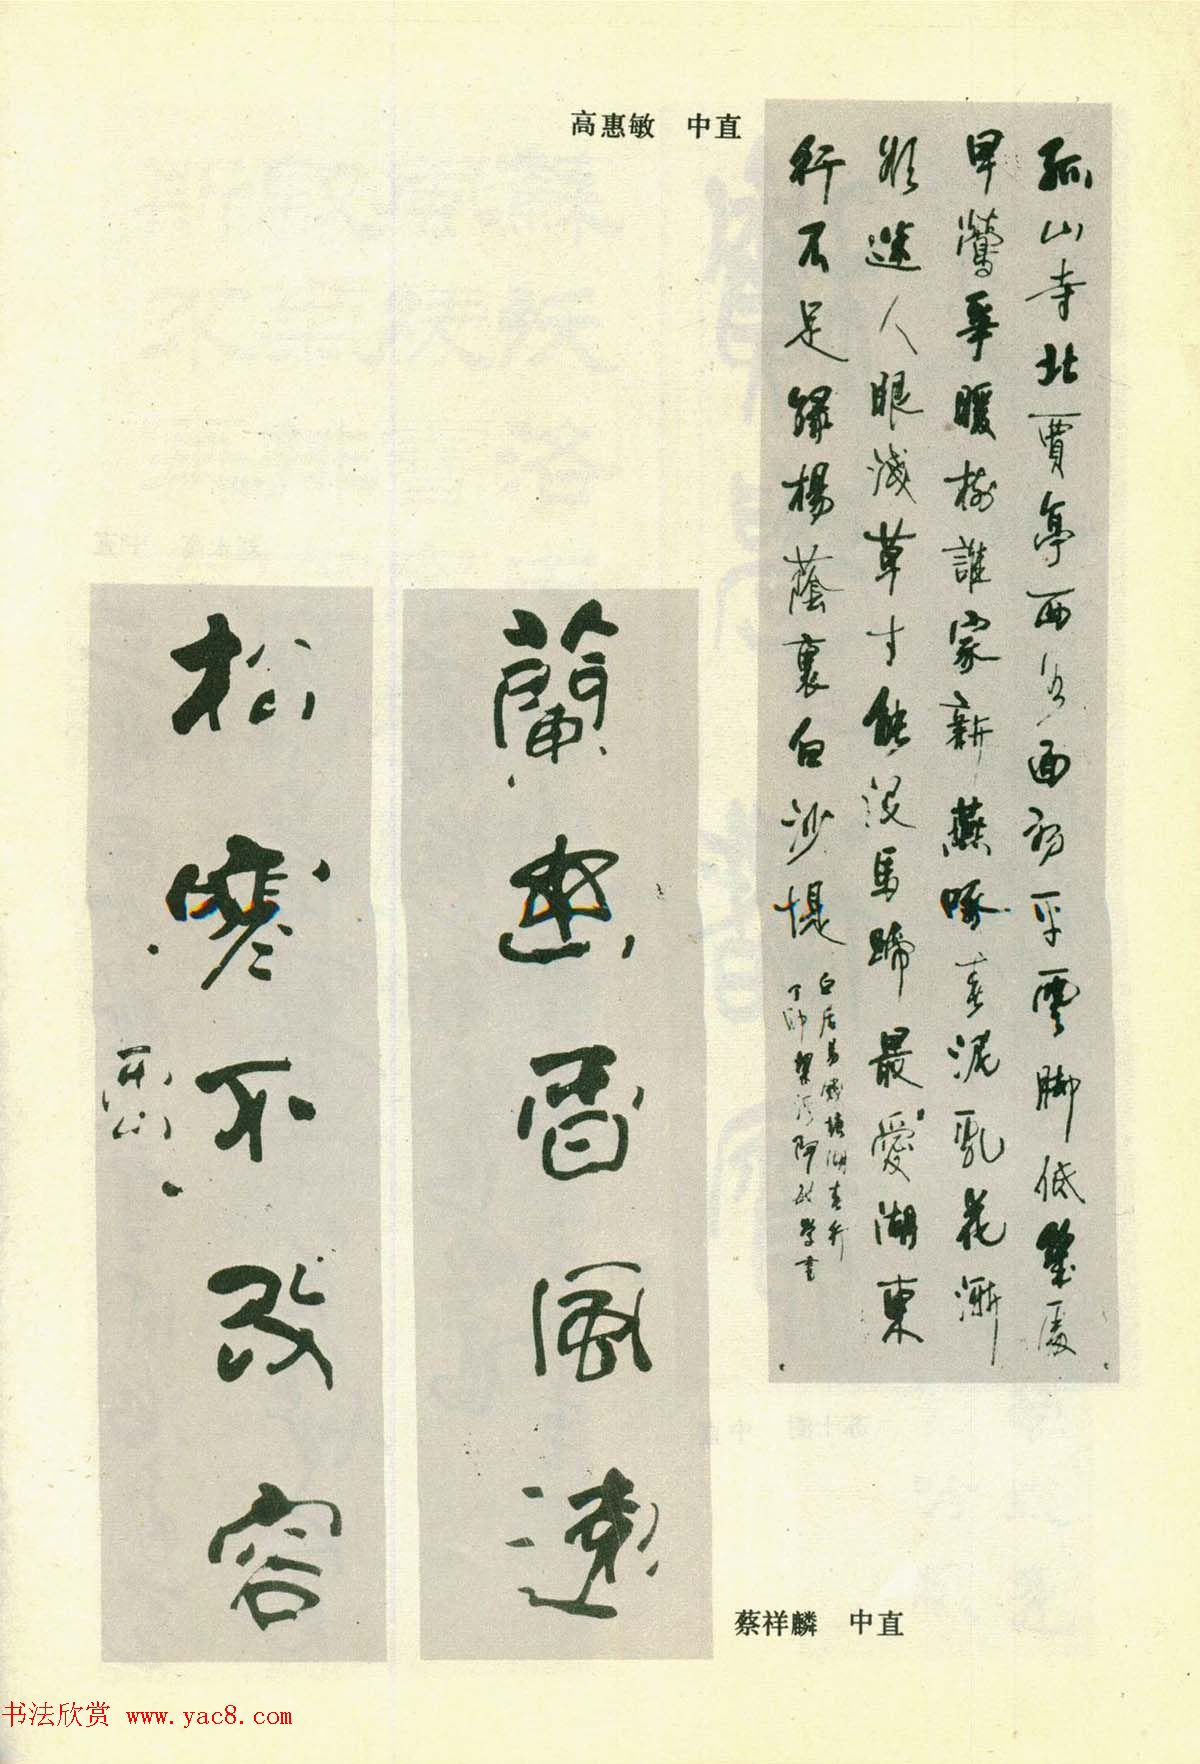 高惠敏　中直
孤山寺北賈亭西水面初平雲脚低幾處
早鶯爭暖樹誰家新燕啄春泥亂花漸
欲迷人眼淺草才能沒馬蹄最愛湖東
行不足綠楊蔭裏白沙堤
白居易錢塘湖春行
蘭幽香風遠
松寒不改容
蔡祥麟　中直
书法欣赏 www.yac8.com